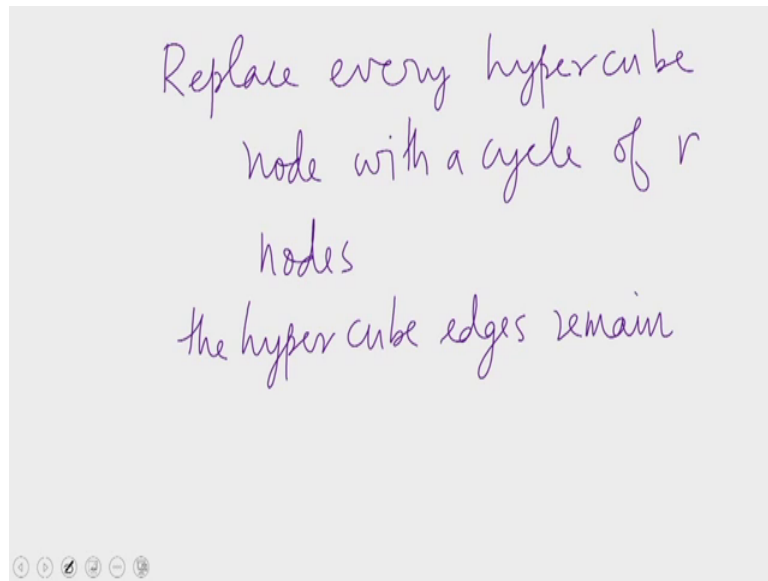 Replace every hypercube
node with a cycle of r
nodes
the hyper cube edges remain